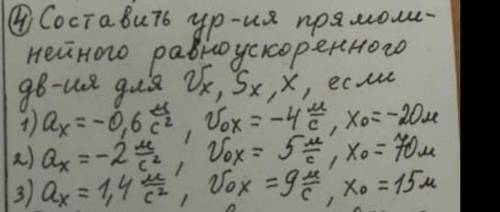 ④ Составить ур-ия прямоли-
нейного равноускоренного
дв-ия для Vx, Sx, x, если
1) ax = -0,6 м/с², Vox = -4 м/с, Xo = -20м
2) ax = -2 м/с², Vox = 5 м/с, Xo = 70м
3) ax = 1,4 м/с², Vox = 9 м/с, Xo = 15м